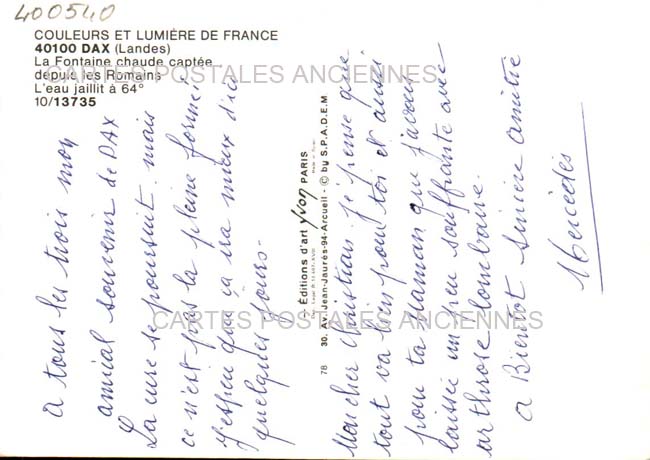 400540
COULEURS ET LUMIÈRE DE FRANCE
40100 DAX (Landes)
La Fontaine chaude captée
depuis les Romains
L'eau jaillit à 64°
10/13735
CARTES POSTALES ANCIENNES
CARTES POSTALES ANCIENNES
à tous les trois mon
amical souvenir de DAX
La cure se poursuit mais
ce n'est pas la pleine forme.
J'espère que ça ira mieux d'ici
quelques jours.
Éditions d'art yvon PARIS
30, Av. Jean-Jaurès-94-Arcueil - © by S.P.A.D.E.M
78
Mon cher Christian je pense que
tout va bien pour toi et aussi
pour ta maman que j'avais
laissée un peu souffrante avec
arthrose lombaire.
a Bientôt sincère amitié
Mercédès